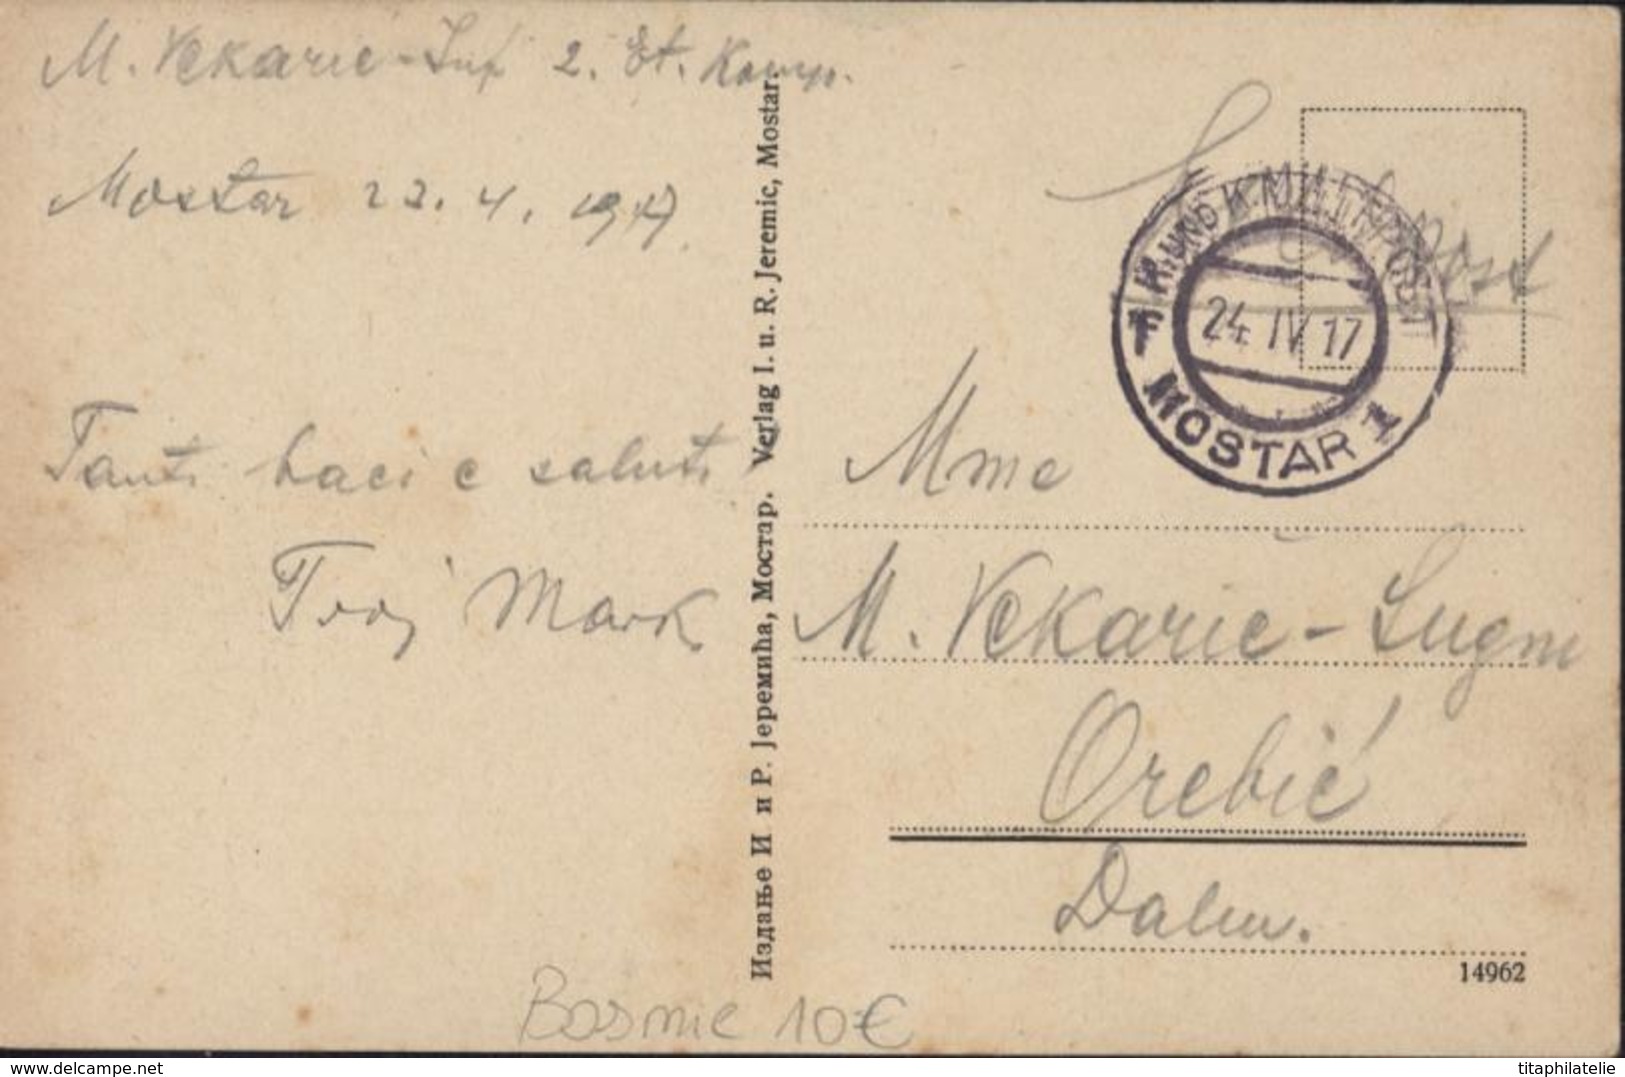 M. Vekarić - Inf 2. Et. Komp.
Mostar 23. 4. 1917.
Tanti baci e saluti
Tvoj Mark
Издање И и Р. Јеремића, Мостар. Verlag I. u. R. Jeremic, Mostar.
Feldpost
K. UND K. MILIT. POST
24 IV 17
MOSTAR 1
Mme
M. Vekaric -
Orebić
Dalm.
14962
Bosnie 10€
delcampe.net
titaphilatelie